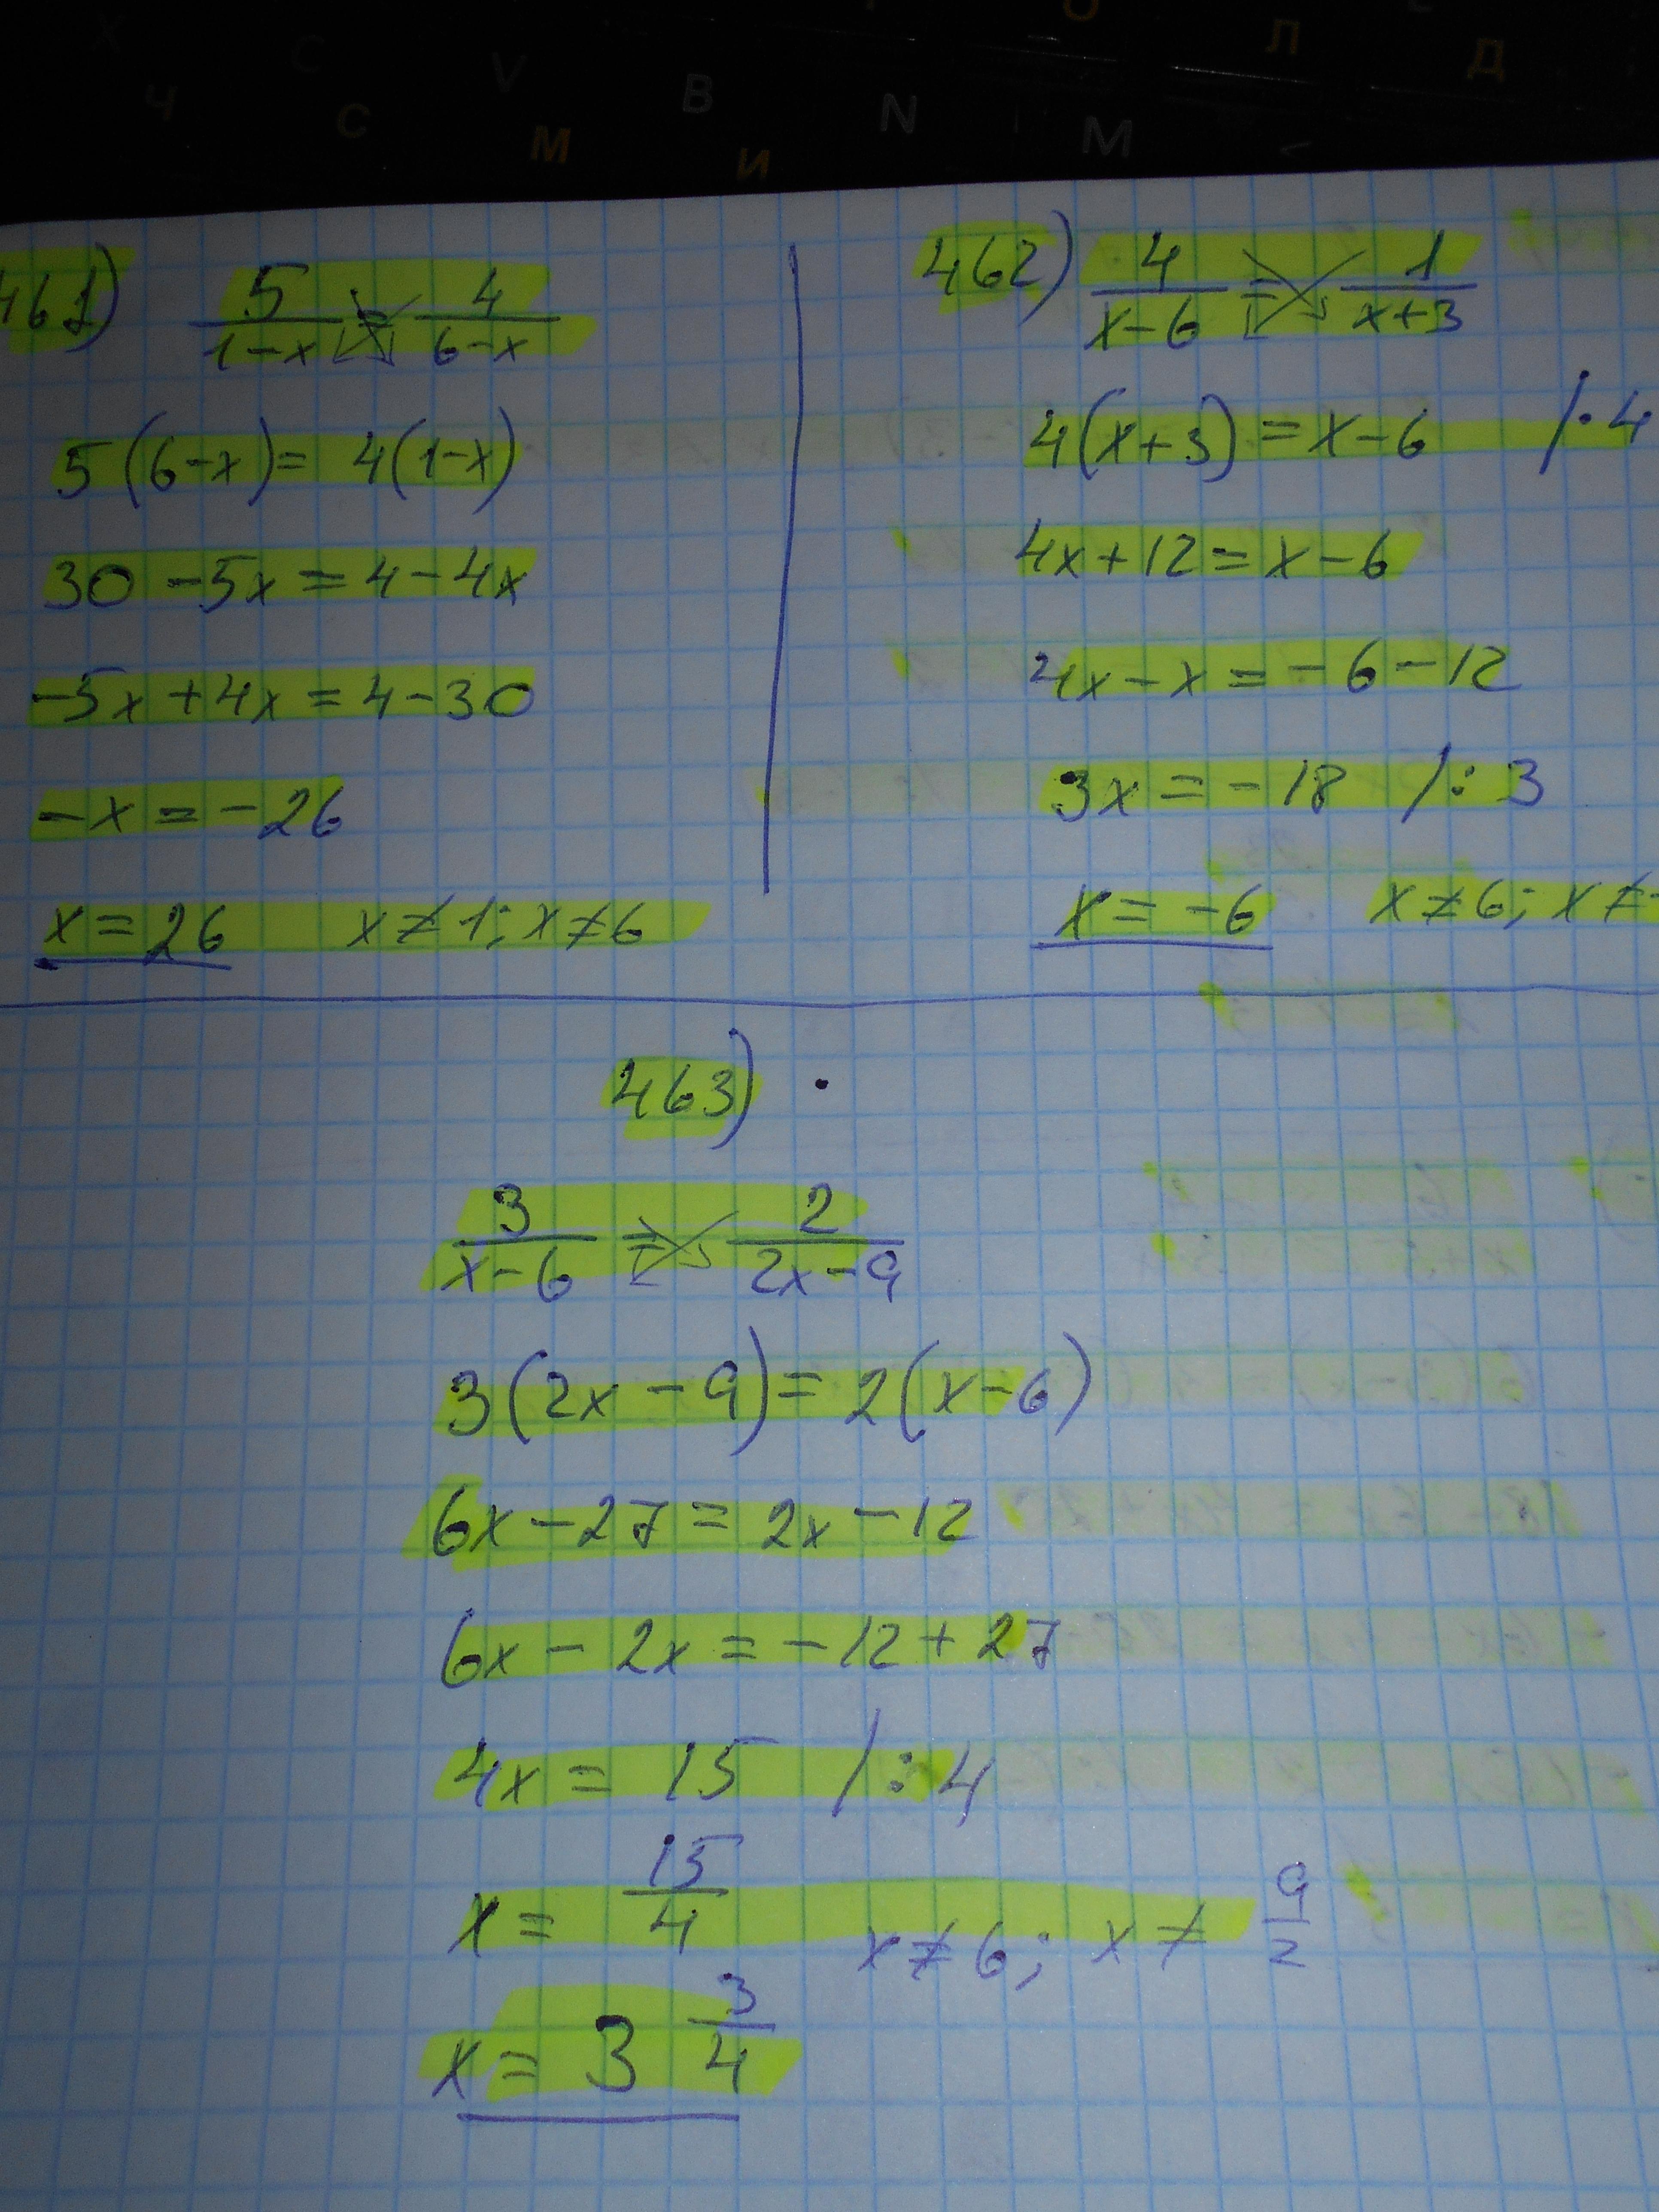 Х С V B N M <
Ч С М И О Л Д
461) 5/(1-x) = 4/(6-x)
5(6-x)= 4(1-x)
30-5x=4-4x
-5x+4x=4-30
-x=-26
x=26 x≠1; x≠6
462) 4/(x-6) = 1/(x+3)
4(x+3)=x-6 /·4
4x+12=x-6
4x-x=-6-12
3x=-18 /:3
x=-6 x≠6; x≠-
463)
3/(x-6) = 2/(2x-9)
3(2x-9)=2(x-6)
6x-27=2x-12
6x-2x=-12+27
4x=15 /:4
x=15/4 x≠6; x≠9/2
x=3 3/4